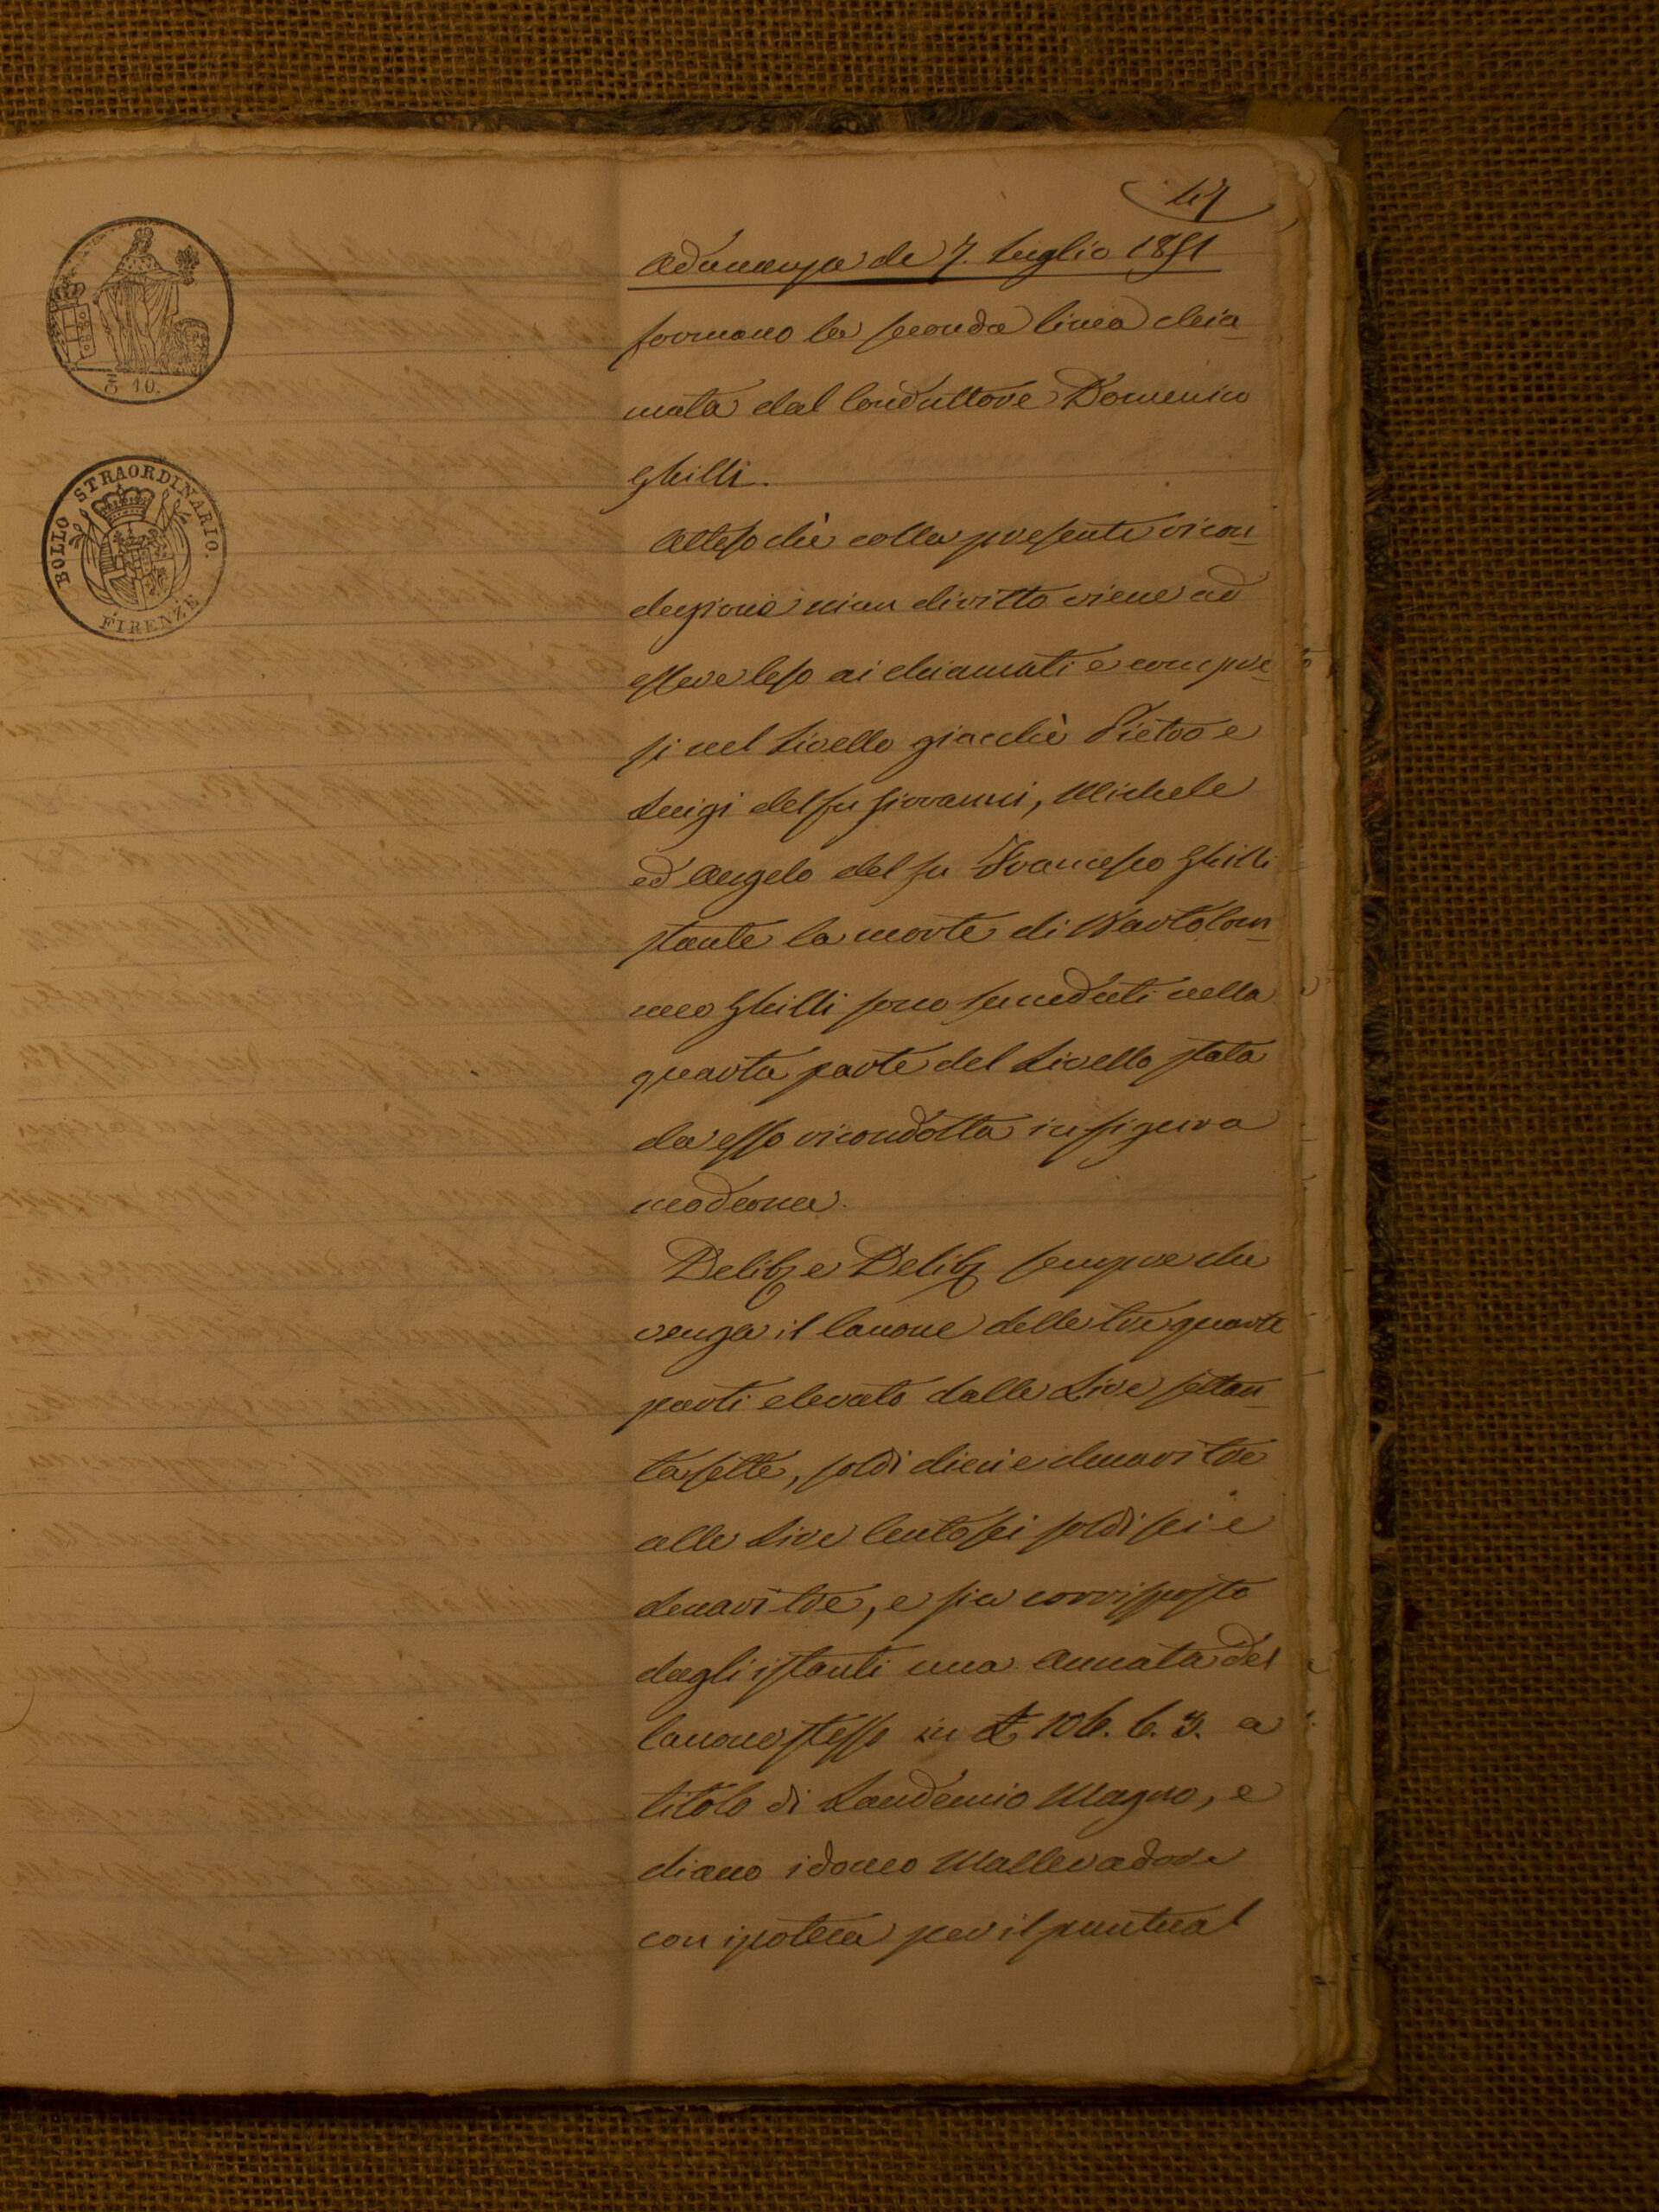 41
Adunanza de 7. Luglio 1851
formano la seconda linea chia
mata dal Conduttore Domenico
Ghilli.
Attesochè colla presente ricon
duzione niun diritto viene ad
essere leso ai chiamati e compre
si nel Livello giacchè Pietro e
Luigi del fu Giovanni, Michele
ed Angelo del fu Francesco Ghilli
stante la morte di Bartolom
meo Ghilli sono succeduti nella
quarta parte del Livello stata
da esso ricondotta in figura
moderna.
Delib. e Delib. sempre che
venga il Canone delle tre quarte
parti elevato dalle Lire settan
tasette, soldi dieci e denari tre
alle Lire Centosei soldi sei e
denari tre, e sia corrisposto
dagli istanti una annata del
Canone stesso in £ 106. 6. 3. a
titolo di Laudemio Magno, e
diano idoneo Mallevadore
con ipoteca per il puntual
Õ 10.
BOLLO STRAORDINARIO.
FIRENZE